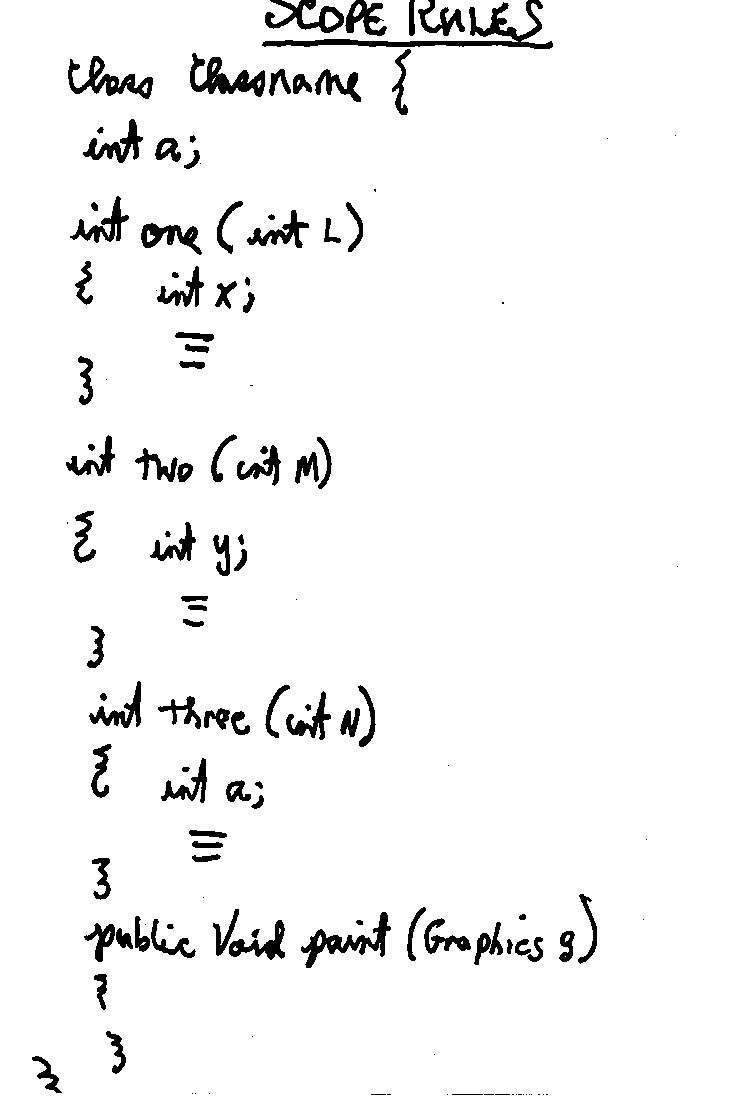 SCOPE RULES
class Classname {
int a;
int one (int L)
{ int x;
}
int two (int M)
{ int y;
}
int three (int N)
{ int a;
}
public Void paint (Graphics g)
{
}
}